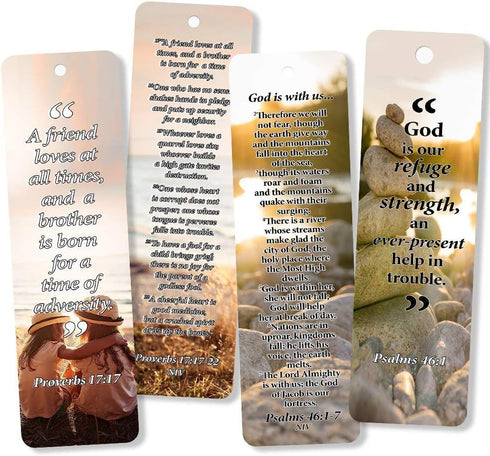 “
A friend
loves at
all times,
and a
brother
is born
for a
time of
adversity.
”
Proverbs 17:17
17"A friend loves at all
times, and a brother is
born for a time
of adversity.
18One who has no sense
shakes hands in pledge
and puts up security
for a neighbor.
19Whoever loves a
quarrel loves sin;
whoever builds
a high gate invites
destruction.
20One whose heart
is corrupt does not
prosper; one whose
tongue is perverse
falls into trouble.
21To have a fool for a
child brings grief;
there is no joy for
the parent of a
godless fool.
22A cheerful heart is
good medicine,
but a crushed spirit
dries up the bones.
Proverbs 17:17-22
NIV
God is with us...
2Therefore we will
not fear, though
the earth give way
and the mountains
fall into the heart
of the sea,
3though its waters
roar and foam
and the mountains
quake with their
surging.
4There is a river
whose streams
make glad the
city of God, the
holy place where
the Most High
dwells.
5God is within her,
she will not fall;
God will help her
at break of day.
6Nations are in
uproar, kingdoms
fall; he lifts his
voice, the earth
melts.
7The Lord Almighty
is with us; the God
of Jacob is our
fortress.
Psalms 46:1-7
NIV
“
God
is our
refuge
and
strength,
an
ever-present
help in
trouble.
”
Psalms 46:1